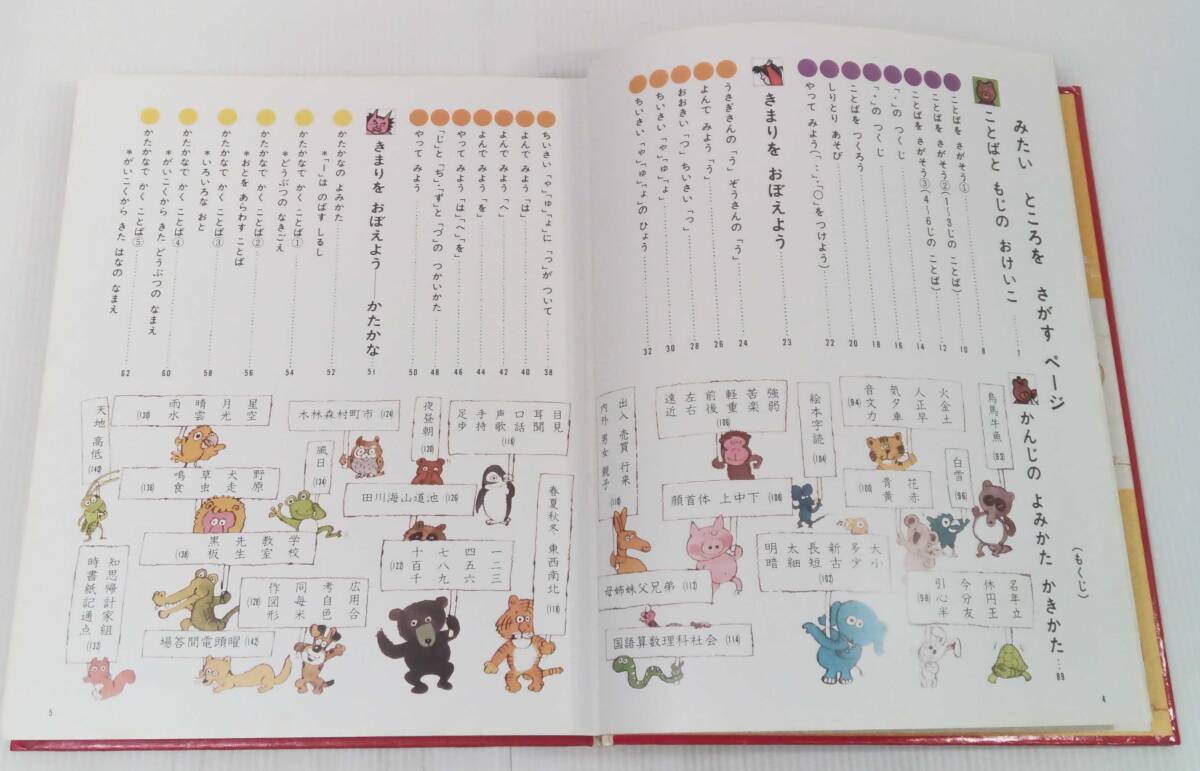 みたい ところを さがす ページ
(もくじ)
ことばと もじの おけいこ……7
ことばを さがそう①……8
ことばを さがそう②(1〜3じの ことば)……10
ことばを さがそう③(4〜6じの ことば)……12
「゛」の つくじ……14
「゜」の つくじ……16
ことばを つくろう……18
しりとり あそび……20
やって みよう(「゛」「゜」をつけよう)……22
きまりを おぼえよう……23
うさぎさんの「う」 ぞうさんの「う」……24
よんで みよう「う」……26
おおきい「つ」 ちいさい「っ」……28
ちいさい「ゃ」「ゅ」「ょ」……30
ちいさい「ゃ」「ゅ」「ょ」の ひょう……32
かんじの よみかた かきかた……89
鳥馬牛魚(92)
火金土
人正早
気夕車
音文力(94)
白雪(96)
名年立
休円王
今分友
引心半(98)
花赤
青黄(100)
大小
多少
新古
長短
太細
明暗(102)
絵本字読(104)
強弱
苦楽
軽重
前後
左右
遠近(106)
顔首体 上中下(108)
出入 売買 行来
内外 男女 親子(110)
母姉妹父兄弟(112)
国語算数理科社会(114)
4
ちいさい「ゃ」「ゅ」「ょ」に「っ」が ついて……38
よんで みよう「は」……40
よんで みよう「へ」……42
よんで みよう「を」……44
やって みよう「は」「へ」「を」……46
「じ」と「ぢ」・「ず」と「づ」の つかいかた……48
やって みよう……50
きまりを おぼえよう——かたかな……51
かたかなの よみかた……52
*「ー」は のばす しるし
かたかなで かく ことば①……54
*どうぶつの なきごえ
かたかなで かく ことば②……56
*おとを あらわす ことば
かたかなで かく ことば③……58
*いろいろな おと
かたかなで かく ことば④……60
*がいこくから きた どうぶつの なまえ
かたかなで かく ことば⑤……62
*がいこくから きた はなの なまえ
目見
耳聞
口話
声歌
手持
足歩(116)
春夏秋冬 東西南北(118)
夜昼朝(120)
一二三
四五六
七八九
十百千(122)
木林森村町市(124)
田川海山道池(126)
広用合
考自色
同毎米
作図形(128)
星空
月光
晴雲
雨水(130)
知思帰計家組
時書紙記通点(132)
風日(134)
野原
犬走
草虫
鳴食(136)
学校
教室
先生
黒板(138)
天地 高低(140)
場答間電頭曜(142)
5